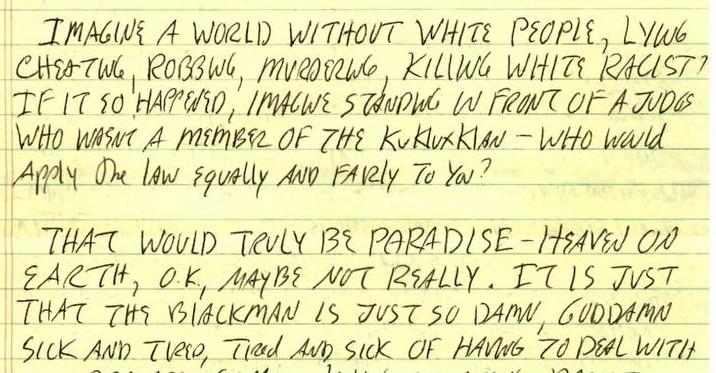 IMAGINE A WORLD WITHOUT WHITE PEOPLE, LYING
CHEATING, ROBBING, MURDERING, KILLING WHITE RACIST?
IF IT SO HAPPENED, IMAGINE STANDING IN FRONT OF A JUDGE
WHO WASNT A MEMBER OF THE KuKluxKlan - WHO WOULD
Apply The law Equally AND FAIRly To You?
THAT WOULD TRULY BE PARADISE - HEAVEN ON
EARTH, O.K, MAYBE NOT REALLY. IT IS JUST
THAT THE BlACKMAN IS JUST SO DAMN, GODDAMN
SICK AND TIRED, TIRED AND SICK OF HAVING TO DEAL WITH